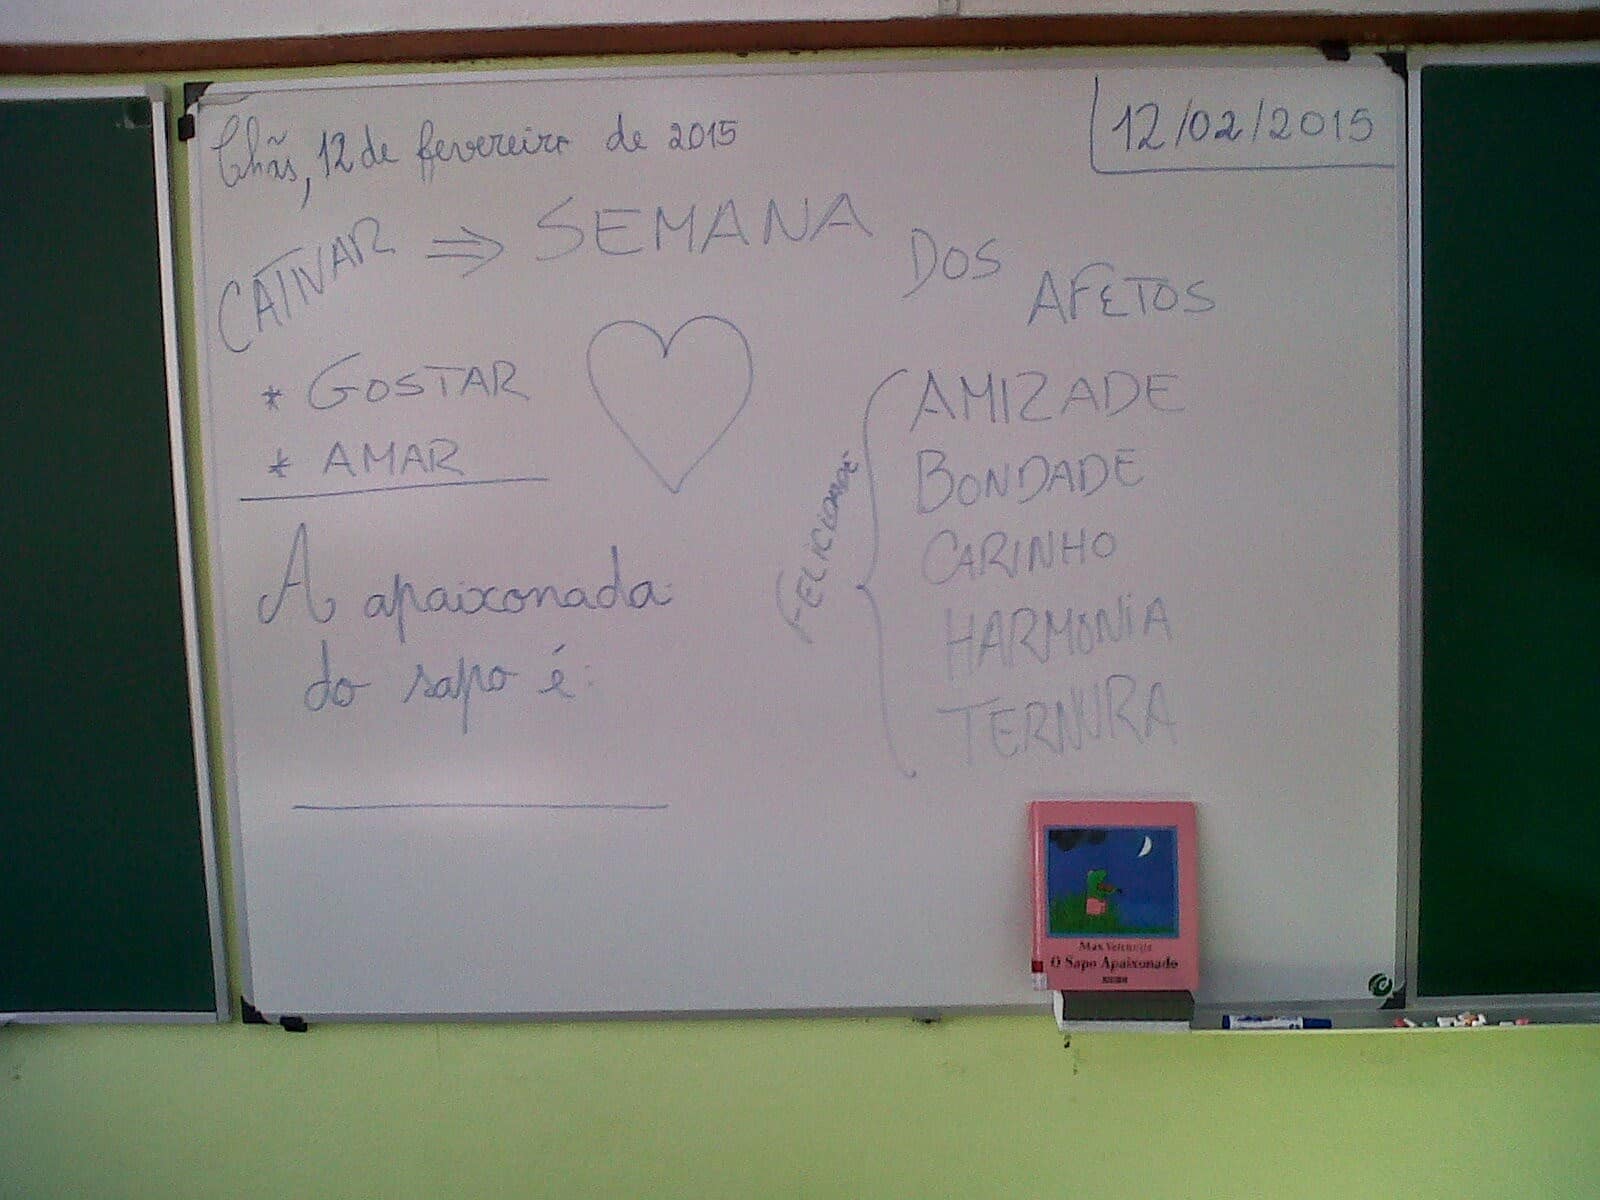 Chãs, 12 de fevereiro de 2015
12/02/2015
CATIVAR ⇒ SEMANA DOS AFETOS
* GOSTAR
* AMAR
A apaixonada
do sapo é:
FELICIDADE
AMIZADE
BONDADE
CARINHO
HARMONIA
TERNURA
Max Velthuijs
O Sapo Apaixonado